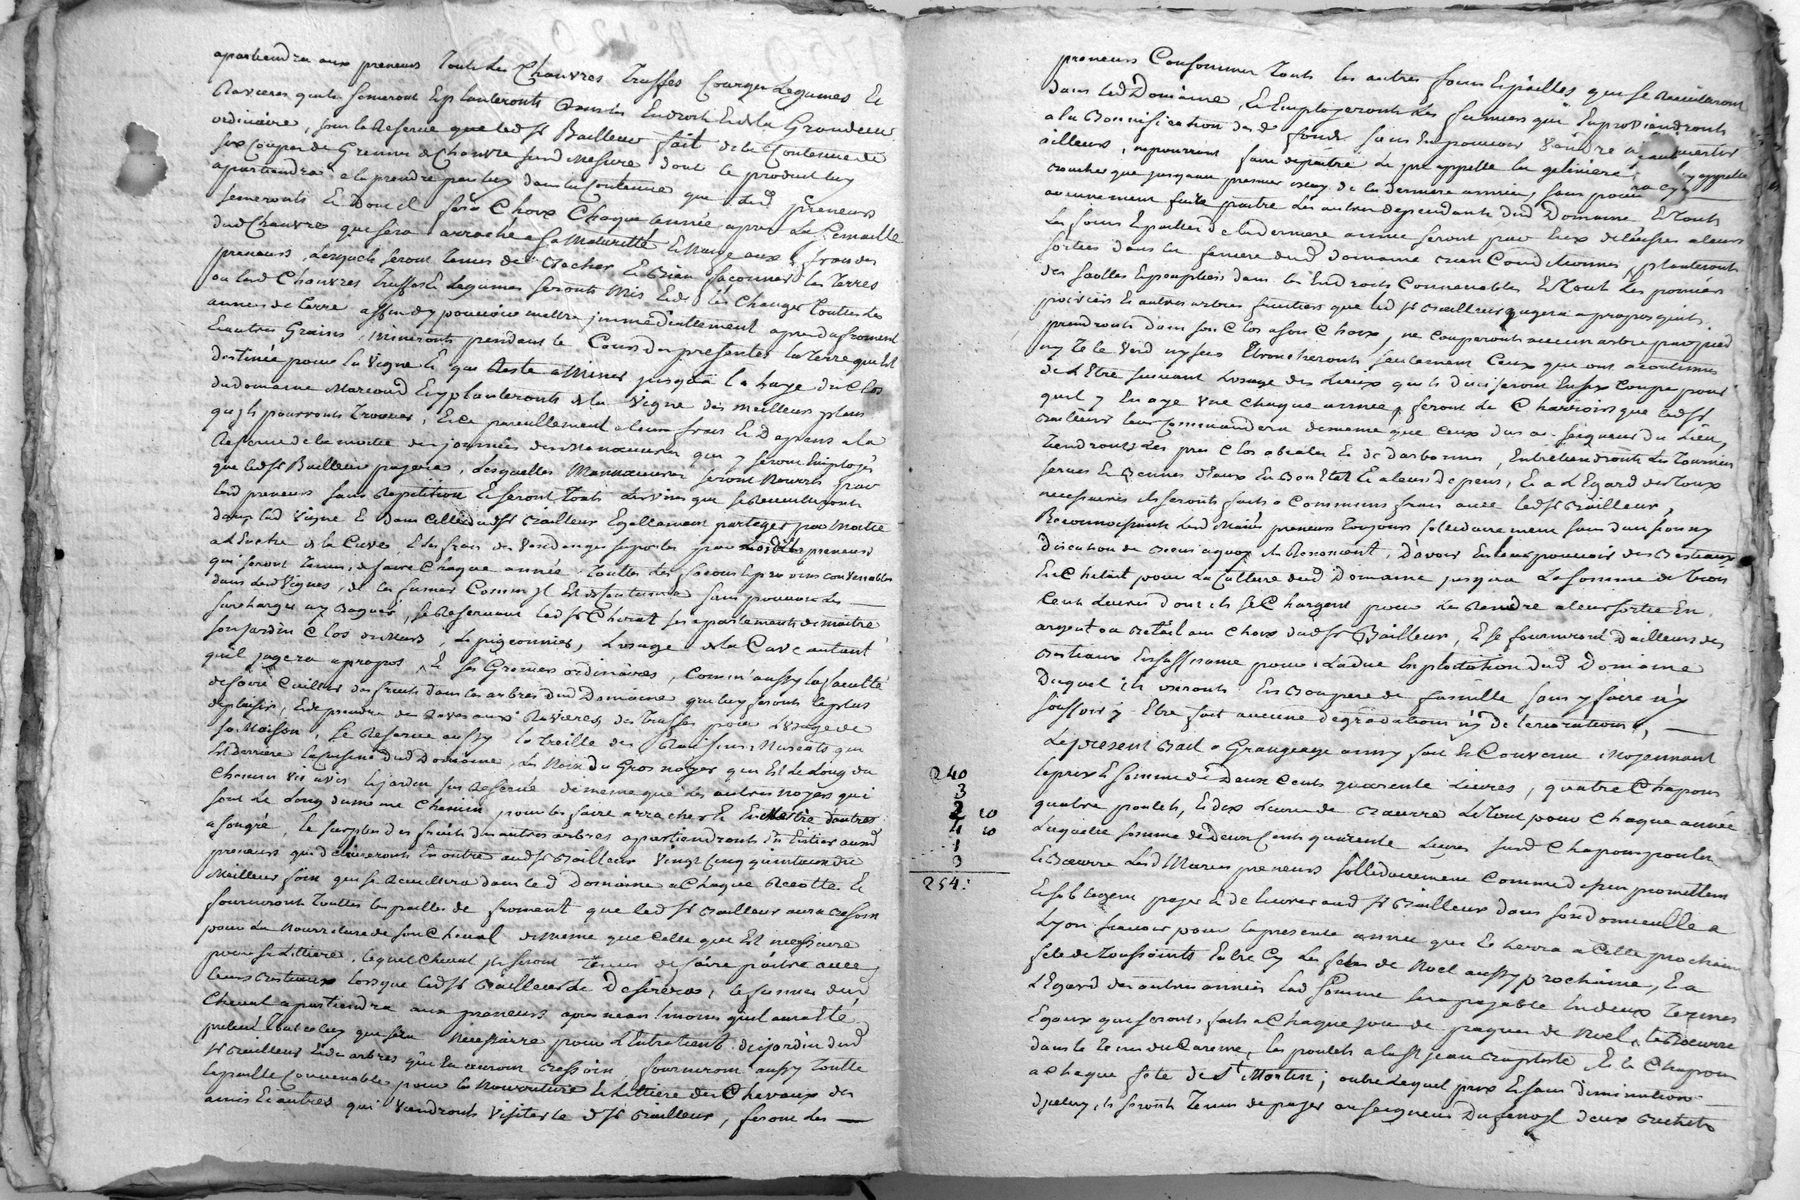 apartiendra aux preneurs Touts les Chanvres Truffes Courges Legumes Et
Ravieres quils semeront Et planteronts dans les Endroits Et de la Grandeur
ordinaire, sous la Reserve que led Sr Bailleur fait de la Contenue de
six Coupes de Graines de Chanvre susd Mesure dont le produit luy
apartiendra a le prendre par luy dans la Contenue que lesd preneurs
semeronts Et Dont il fera Choix Chaque année apres La semaille
dud Chanvres que sera arraché a sa Maturitté Et Naisé aux frais des
preneurs, Lesquels seront tenus de Bacher Et Bien façonner les Terres
ou lesd Chanvres Truffes Et Legumes seronts Mis Et de les Changer touttes les
années de Terre affin d'y pouvoir mettre immediatement apres du froment
Et autres Grains, Mineronts pendant le Cours des presentes la terre qui Est
destinée pour la Vigne Et qui Reste a Miner jusqua la haye du Clos
du domaine Marcoud Et y planteronts de la Vigne des meilleurs plans
quils pourronts Trouver, Et Ce pareillement a leurs frais Et Depens a la
Reserve de la moitie des journées des Manoeuvres qui y seront Employés
que led Sr Bailleur payera, Lesquelles Manoeuvres seront Nourris par
lesd preneurs sans Repetition Et seront Touts les Vins que se Recuilliront
dans lad Vigne Et dans Celles dud Sr Bailleur Egallement partagés par Moitie
a L'Entre de la Cuve, Et les frais des Vendanges suportés par lesdits preneurs
qui seront Tenus de faire Chaque année Touttes les fosses Et provins convenables
dans lesd Vignes, de les fumer Comm'il Est de Coutume sans pouvoir les
surcharger ny Baguer, se Reservant led Sr Cherat ses apartements de maitre
son jardin Clos de Murs, Le pigeonnier, L'usage de la Cave autant
quil jugera apropos, Et ses Greniers ordinaires, Comm'aussy la faculté
de faire Cuillir des fruits dans les arbres dud Domaine qui luy seronts le plus
deplaisir, Et de prendre des Raves aux Ravieres des Truffes pour L'usage de
sa Maison, se Reserve aussy la Treille des Raisins Muscats qui
Est derriere la Cuisine dud Domaine, les Noix du Gros noyer qui Est le Long du
Chemin vis a vis le jardin sus Reservé de meme que les autres noyers qui
sont Le Long du meme Chemin, pour les faire arracher Et En Mettre d'autres
a son gré, le surplus des fruits des autres arbres apartiendronts En Entier auxd
preneurs qui delivreronts En outre aud Sr Bailleur Vingt Cinq quintaux du
Meilleur foin que se Recuillira dans led Domaine a Chaque Recolte Et
fourniront Touttes les pailles de froment que led Sr Bailleur aura Besoin
pour la Nourriture de son Cheval de Meme que Celle qui Est necessaire
pour sa Littiere, lequel Cheval ils seront Tenus de faire paitre avec
leurs Bestiaux lorsque led Sr Bailleur Le Desirera, le fumier dud
Cheval apartiendra aux preneurs apres neanmoins quil aura Eté
prelevé tout celuy que sera Necessaire pour L'Entretient du jardin dud
Sr Bailleur Et des arbres qui En auront Bessoin, fourniront aussy Toutte
la paille Convenable pour la Nourriture Et littiere des Chevaux des
amis Et autres qui Viendronts Visiter le d Sr Bailleur, feront Les
preneurs Consommer Touts les autres foins Et pailles que se Recuilleront
dans led Domaine, Et Employeronts les fumiers qui En proviendronts
a la Bonnification des d fonds sans En pouvoir Vendre
ailleurs, ne pourront faire depaitre Le pré appellé la geliniere
que jusqu'au premier may de la derniere année, sans pouvoir
aucunement faire paitre les autres dependants dud Domaine Et Touts
Les foins Et pailles de la derniere année seront par Eux delaissés a leur
sorties dans la feniere dud domaine Bien Conditionnés, planteronts
des Saulles Et peupliers dans les Endroits Convenables Et Tout Les pomiers
poiriers Et autres arbres fruitiers que led Sr Bailleur jugera apropos quils
prendronts dans son Clos a son Choix, ne Couperont aucun arbre par pied
ny Tete Verd ny sec Ebroncheronts seulement Ceux qui ont accoutumés
de L'Etre suivant L'usage des Lieux quils diviseront En six Coupes pour
quil y En aye une Chaque année, feront Les Charrois que led Sr
Bailleur leur Commandera de meme que Ceux dus au seigneur du Lieu,
Tiendront Les prés Clos abialés Et de darbonnés, Entretiendronts Les Tournes
serves Et Bennes d'Eaux En Bon Etat Et a leurs depens, Et a L'Egard des Toux
necessaires ils seronts faits a Communs frais avec led Sr Bailleur,
Reconnoissants Lesd Mariés preneurs Toujours sollidairement sans division ny
discution de Biens a quoy ils Renoncent, D'avoir En leur pouvoir des Bestiaux
En Cheptail pour la Culture dud Domaine jusqua La somme de Trois
Cent Livres dont ils se Chargent pour les Rendre a leur sortie En
argent ou Betail au Choix dud Sr Bailleur, Et se fourniront d'ailleurs des
Bestiaux En suffisance pour L'adue Exploitation dud Domaine
Duquel ils useronts En Bon pere de famille sans y faire n'y
souffrir y Etre fait aucune degradations n'y deteriorations,
Le present Bail a Grangeage ainsy fait Et Convenu Moyennant
le prix Et somme de Deux Cents quarente Livres, quatre Chapons
quatre poulets, Et dix Livres de Baeurre Le Tout pour Chaque année
Laquelle somme de deux Cents quarente Livres susd Chapons poulets
Et Bœurre Lesd Mariés preneurs sollidairement Comme dessus promettent
Et sobligent payer Et de livrer aud Sr Bailleur dans son domicille a
Lyon scavoir pour la presente année que Echerra a Celle prochaine
fete de Toussaints Entre Cy Les fetes de Noel aussy prochaine, Et a
L'Egard des autres années lad somme sera payable En deux Termes
Egaux que seronts faits a Chaque jour de paques Et Noel, Le Boeurre
dans le Tems du Careme, les poulets a la St Jean Baptiste Et les Chapons
a Chaque fete de St Martin; outre lequel prix Et sans diminution
d'iceluy, ils seronts Tenus de payer au seigneur Du fenoyl deux Bichets
240
3
2 10
4 10
1
3
254: